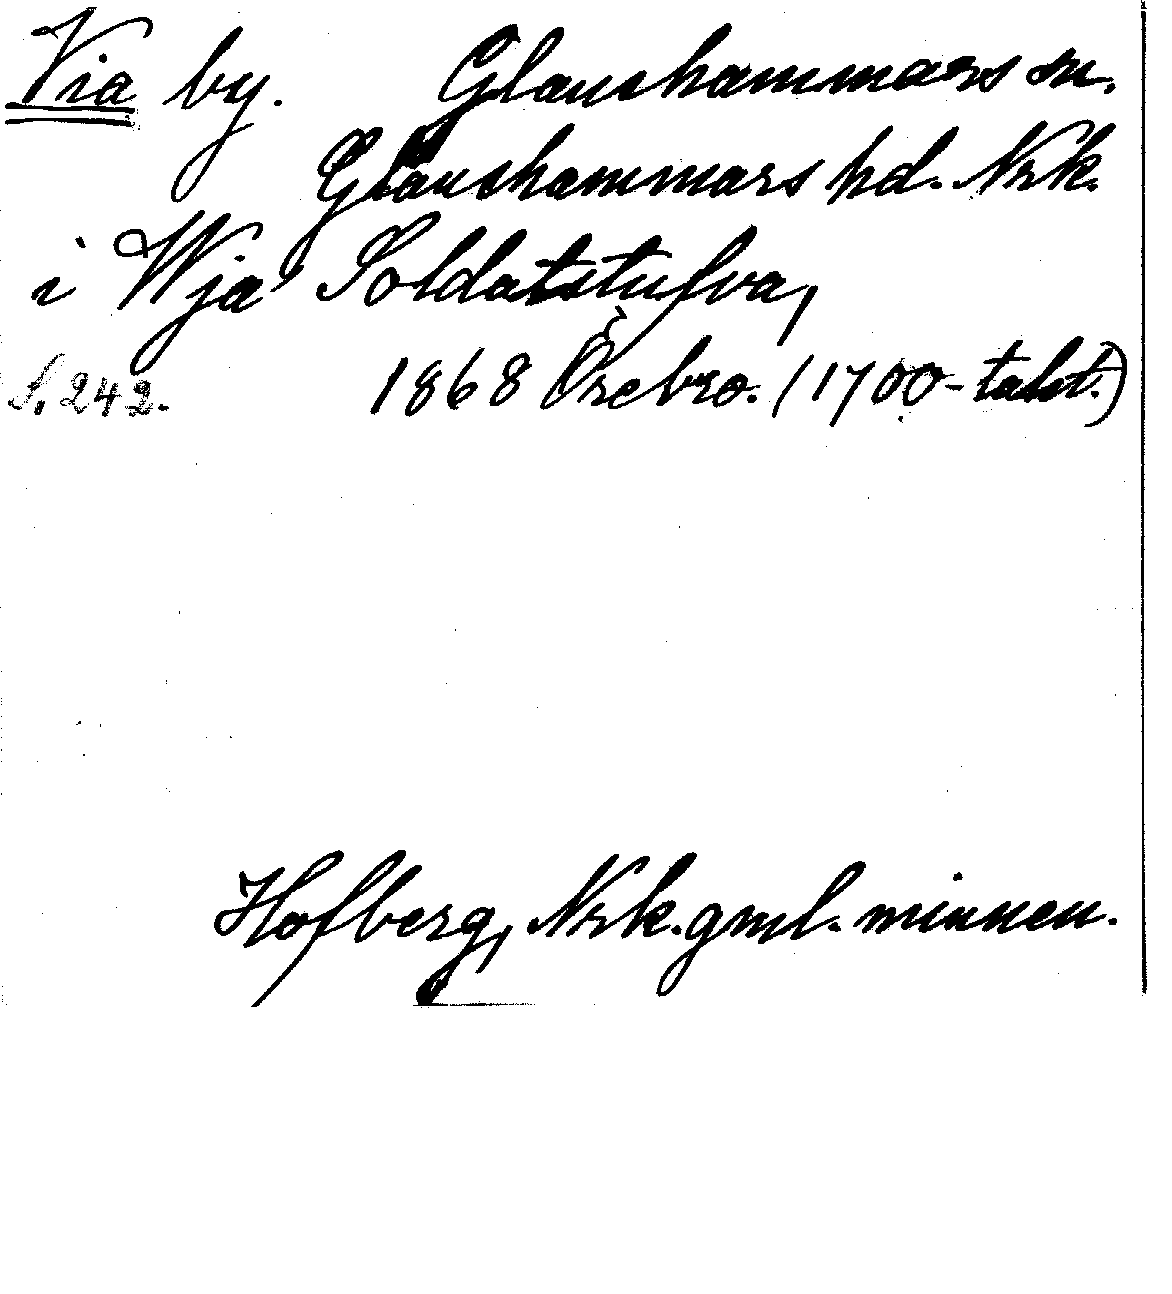 Via by. Glanshammars sn.
Glanshammars hd. Nrk.
i Wja Soldatstufva,
S. 242. 1868 Örebro. (1700-talet.)
Hofberg, Nrk. gml. minnen.